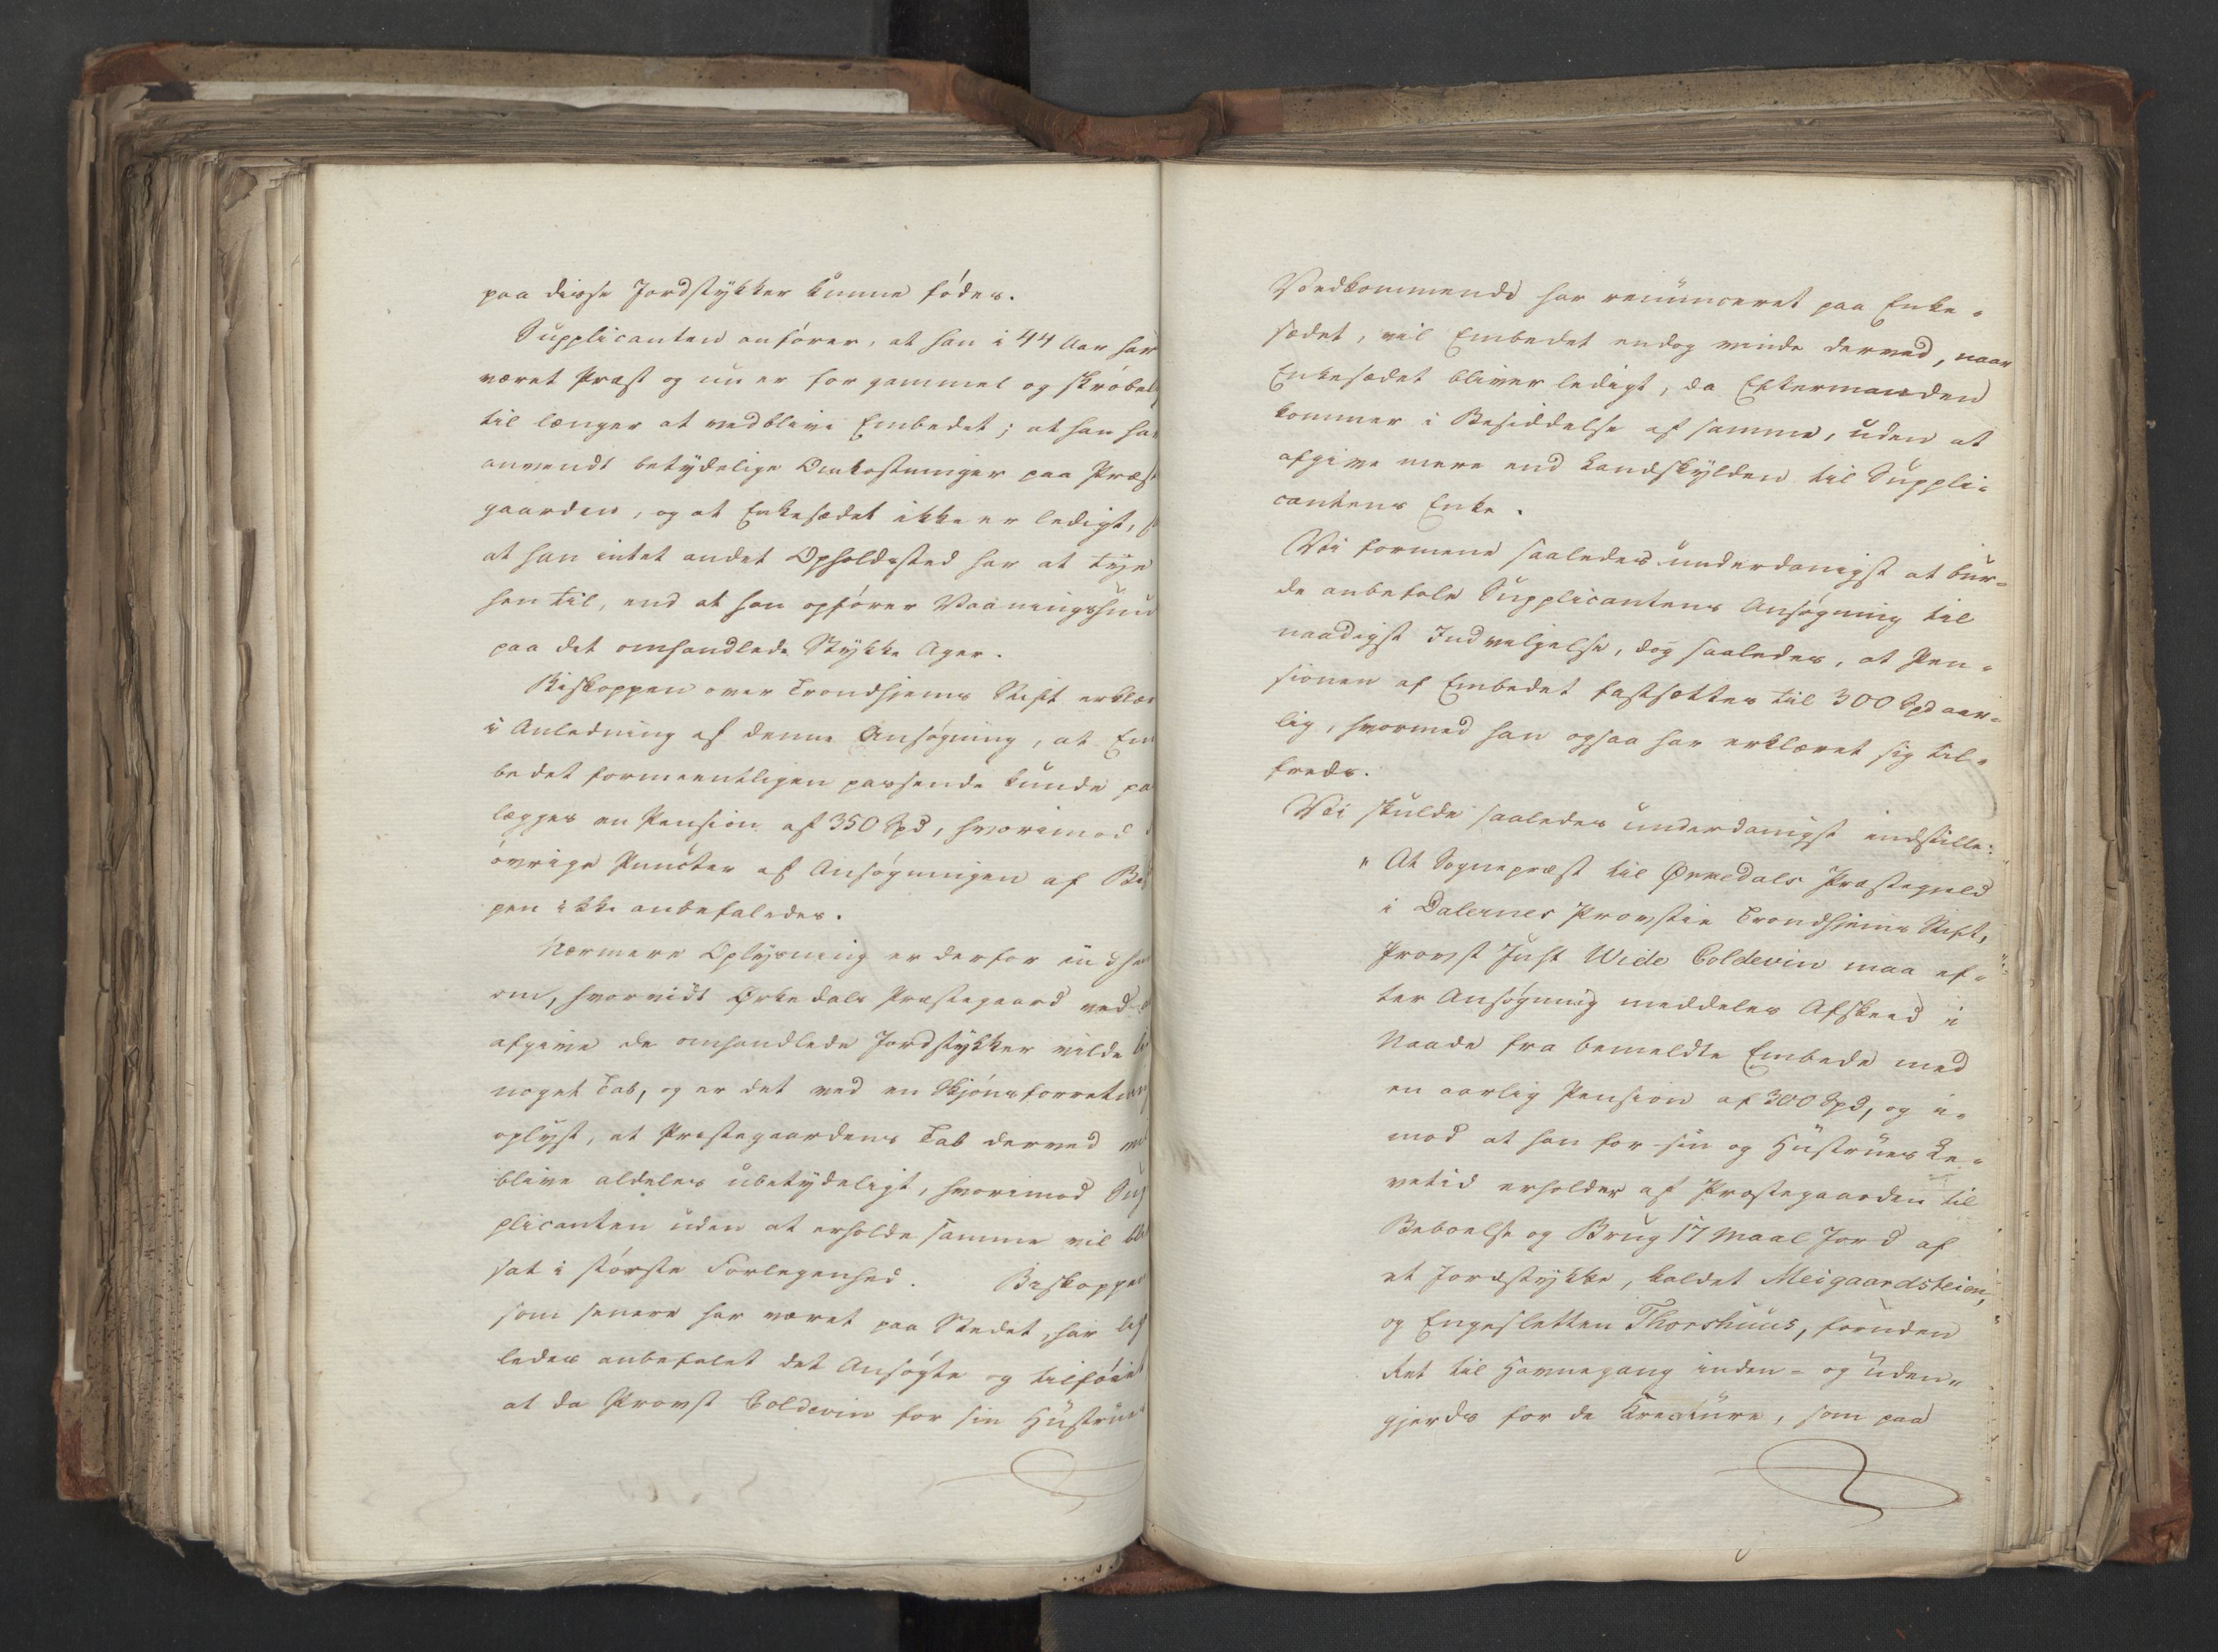 paa disse Jordstykker kunne födes.
Supplicanten anförer, at han i 44 Aar har
været Præst og nu er for gammel og skröbel
til længer at vedblive Embedet; at han har
anvendt betydelige Omkostninger paa Præst
gaarden, og at Enkesædet ikke er ledigt, s
at han intet andet Opholdssted har at tye
hen til, end at han opförer Vaaningshuus
paa det omhandlede Stykke Ager.
Biskoppen over Trondhjems Stift erklær
i Anledning af denne Ansögning, at Em
bedet formeentligen passende kunde pa
lægges en Pension af 350 Spd, hvorimod d
övrige Puncter af Ansögningen af Bis
pen ikke anbefaledes.
Nærmere Oplysning er derfor indhen
om, hvorvidt Örkedals Præstegaard ved a
afgive de omhandlede Jordstykker vilde li
noget Tab, og er det ved en Skjönsforretning
oplyst, at Præstegaardens Tab derved vil
blive aldeles ubetydeligt, hvorimod Sup
plicanten uden at erholde samme vil bli
sat i störste Forlegenhed. Biskoppen
som senere har været paa Stedet, har lig
ledes anbefalet det Ansögte og tilföiet
at da Provst Coldevin for sin Hustrues
Vedkommende har renunceret paa Enke-
sædet, vil Embedet endog vinde derved, naar
Enkesædet bliver ledigt, da Eftermanden
kommer i Besiddelse af samme, uden at
afgive mere end Landskylden til Suppli-
cantens Enke.
Vi formene saaledes underdanigst at bur-
de anbefale Supplicantens Ansögning til
naadigst Indvilgelse, dog saaledes, at Pen-
sionen af Embedet fastsættes til 300 Spd aar-
lig, hvormed han ogsaa har erklæret sig til-
freds.
Vi skulde saaledes underdanigst indstille:
"At Sognepræst til Örkedals Præstegjeld
i Dalernes Provstie Trondhjems Stift,
Provst Just Wide Coldevin maa ef-
ter Ansögning meddeles Afsked i
Naade fra bemeldte Embede med
en aarlig Pension af 300 Spd, og i-
mod at han for sin og Hustrues Le-
vetid erholder af Præstegaarden til
Beboelse og Brug 17 Maal Jord af
et Jordstykke, kaldet Meigaardsteien,
og Engesletten Thorshuus, foruden
Ret til Havnegang inden- og uden-
gjerds for de Kreature, som paa